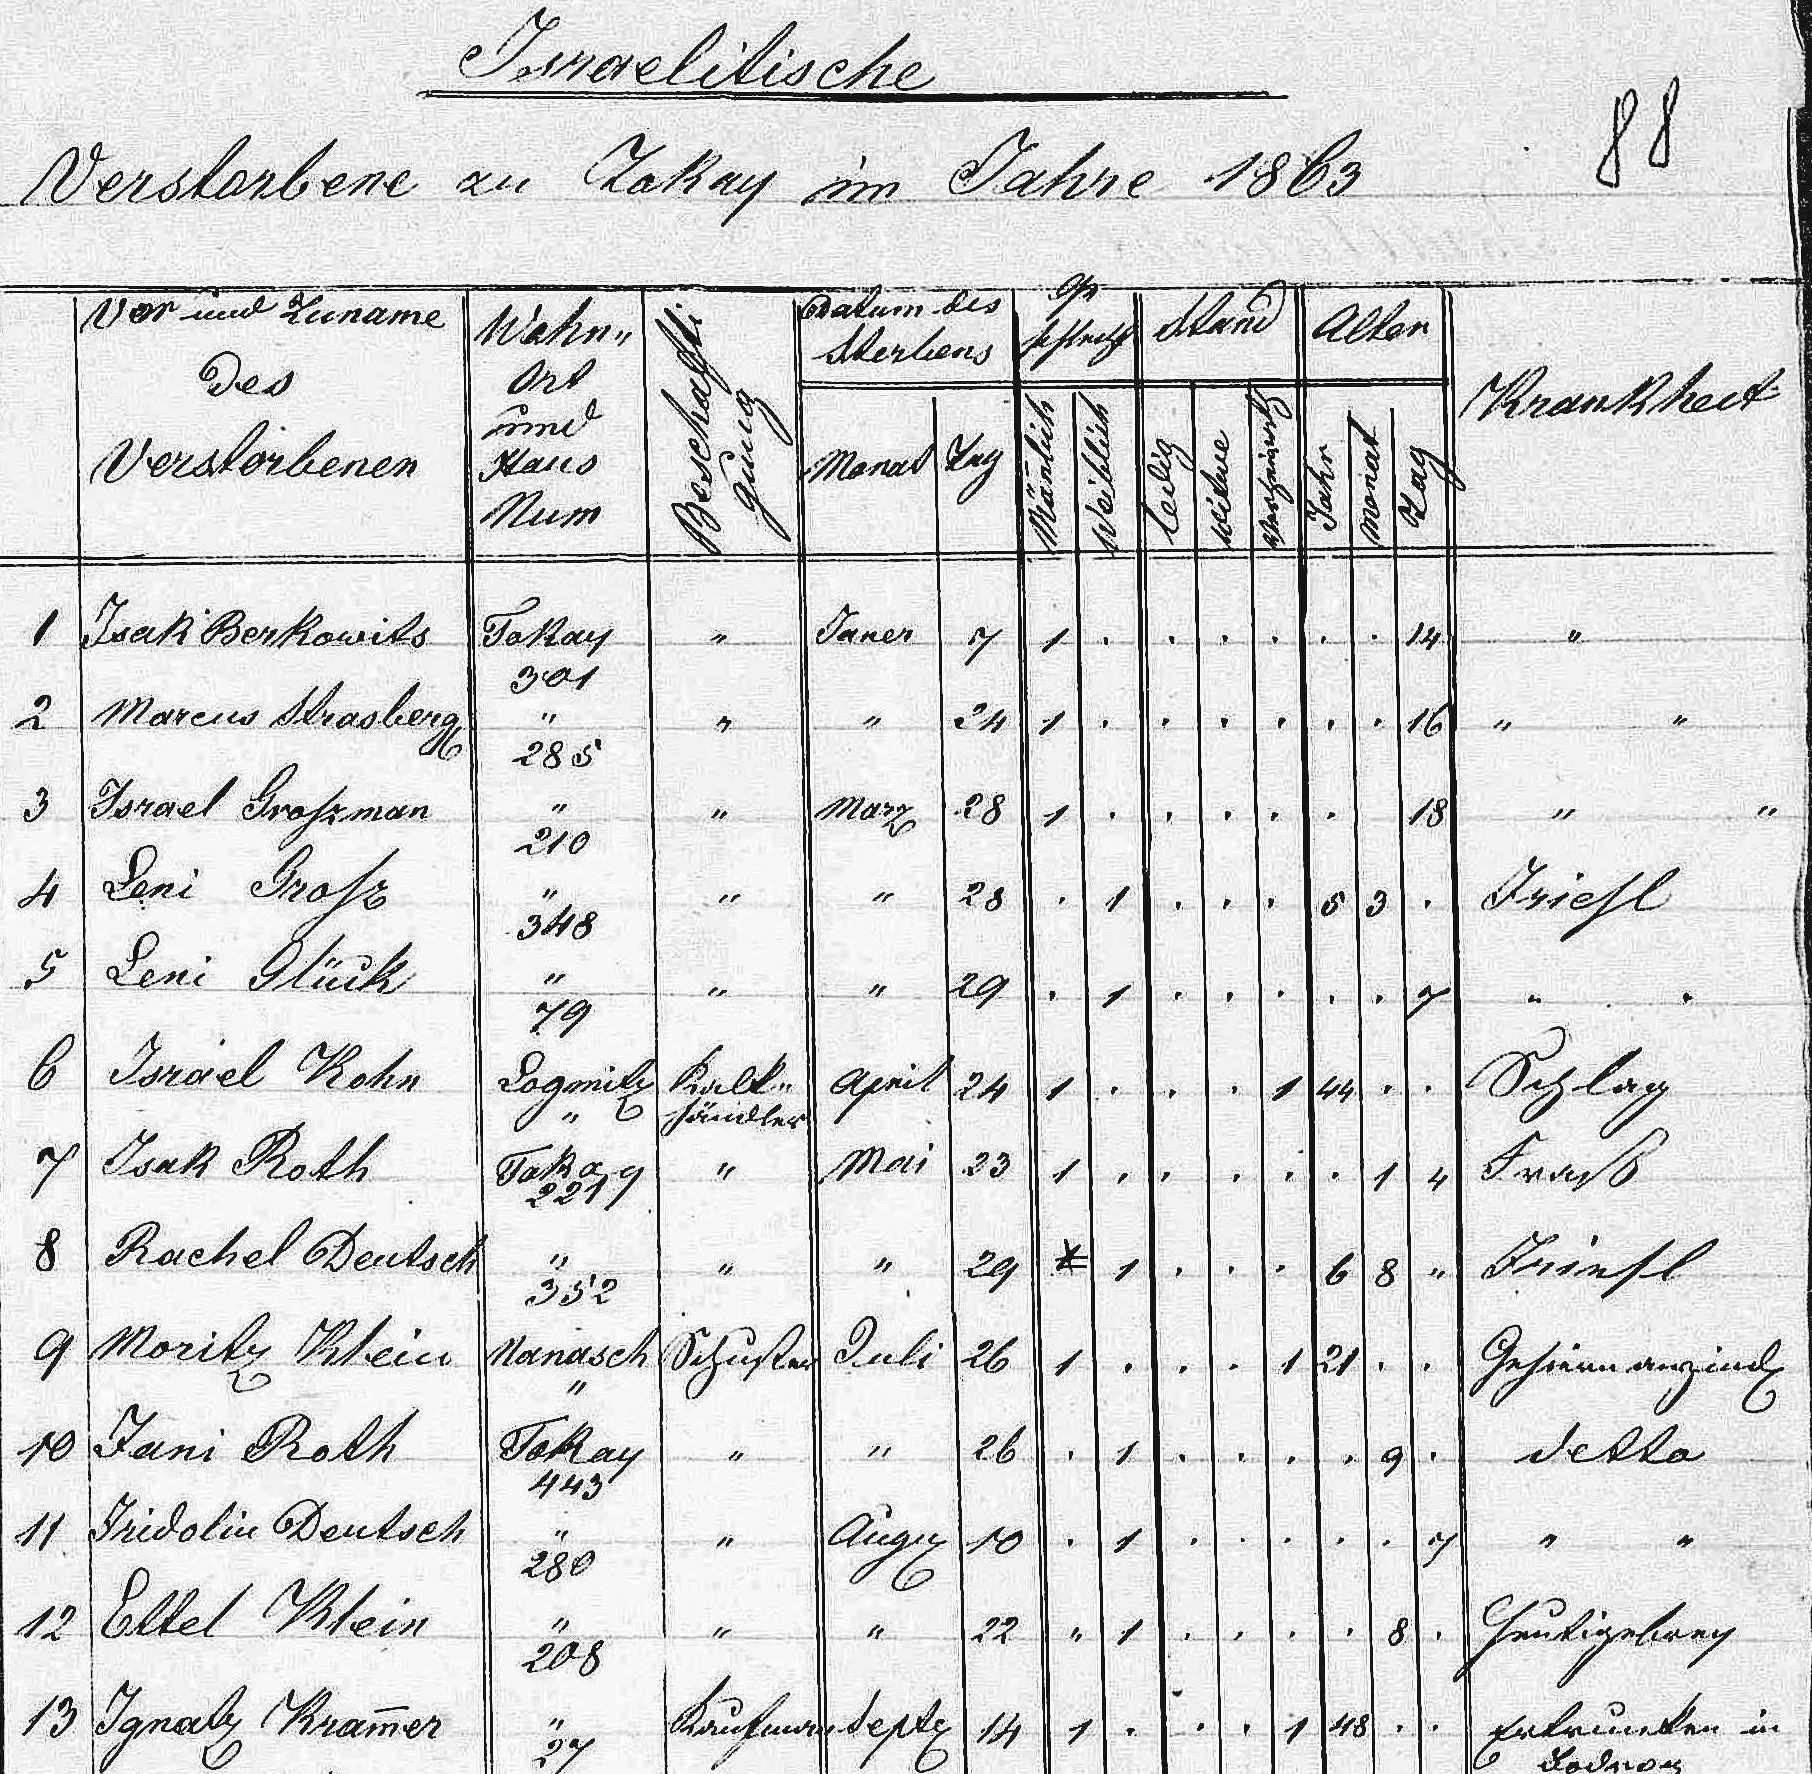 Israelitische
88
Verstorbene zu Tokay im Jahre 1863
Vor und Zuname des Verstorbenen
Wohn„ Ort und Haus Num
Beschäfti gung
Datum des Sterbens
Monat Tag
Ge schlecht
Mänlich Weiblich
Stand
Ledig Witwe Verheiratet
Alter
Jahr Monat Tag
Krankheit
1 Isak Berkowits Tokay 301 " Janer 7 1 . . . . . . 14 "
2 Marcus Strasberg " 285 " " 24 1 . . . . . . 16 " "
3 Israel Groszman " 210 " Marz 28 1 . . . . . 18 " "
4 Leni Grosz " 348 " " 28 . 1 . . . 5 3 . Friesl
5 Leni Glück " 79 " " 29 . 1 . . . . . 7 " .
6 Israel Kohn Logmitz " händler April 24 1 . . . 1 44 . . Schlag
7 Isak Roth Tokay 221 " Mai 23 1 . . . . . 1 4 Fraiß
8 Rachel Deutsch " 352 " " 29 1 . . . 6 8 " Friesl
9 Moritz Klein Nanasch " Schuster Juli 26 1 . . . 1 21 . .
10 Fani Roth Tokay 443 " " 26 . 1 . . . . 9 . detto
11 Fridolin Deutsch " 280 " Aug 10 . 1 . . . . . 7 " "
12 Ettel Klein " 208 " " 22 " 1 . . . . 8 .
13 Ignatz Kram̅er " 27 Kaufman Sept 14 1 . . . 1 48 . . Ertrunken in Bodrog